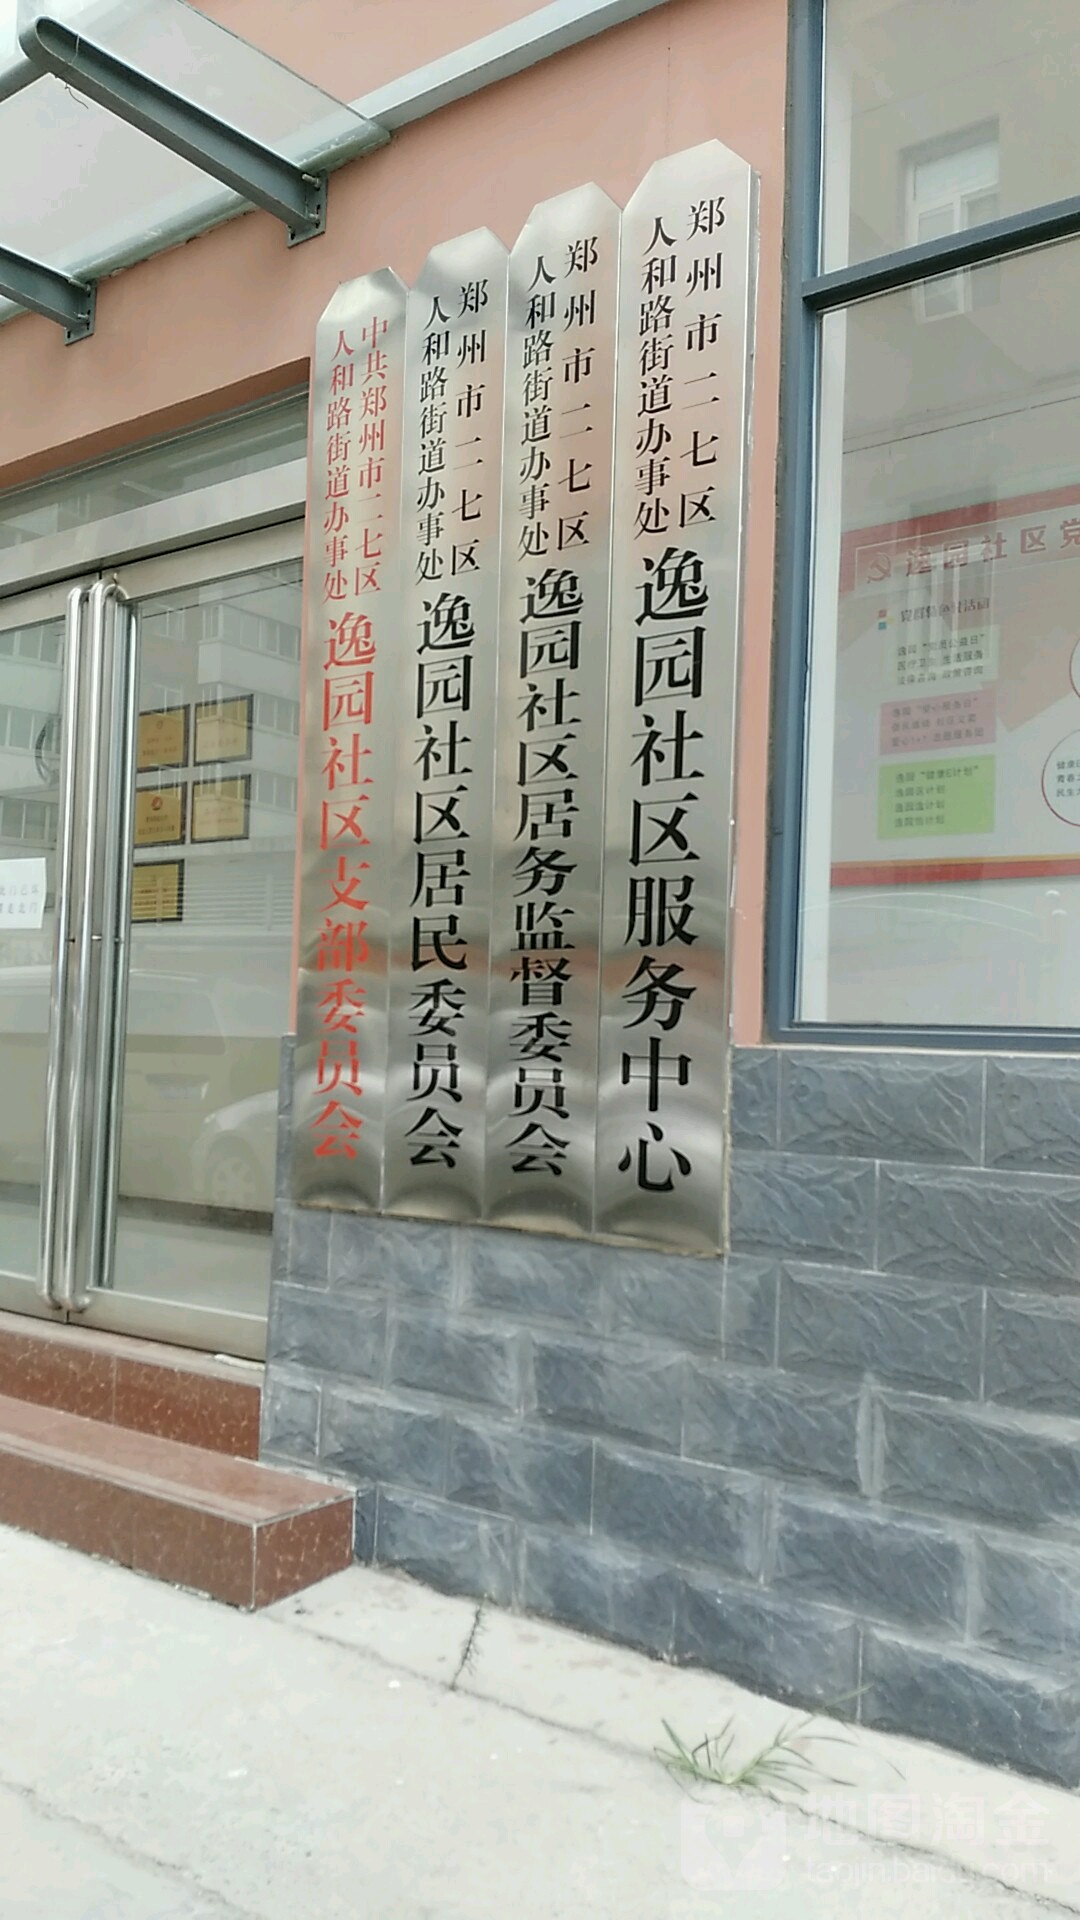 中共郑州市二七区
人和路街道办事处
逸园社区支部委员会
郑州市二七区
人和路街道办事处
逸园社区居民委员会
郑州市二七区
人和路街道办事处
逸园社区居务监督委员会
郑州市二七区
人和路街道办事处
逸园社区服务中心
逸园社区党
逸园“健康E计划”
地图淘金
taojin.baidu.com